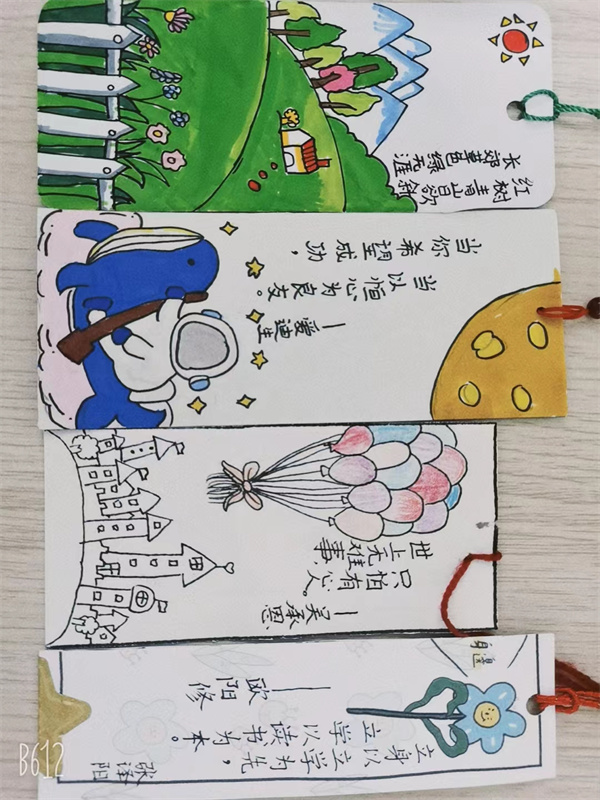 红树青山日欲斜
长效草色绿无涯
当你希望成功，
当以恒心为良友。
—爱迪生
世上无难事，
只怕有心人。
—吴承恩
立身以立学为先，
立学以读书为本。
——欧阳修
张泽阳
B612